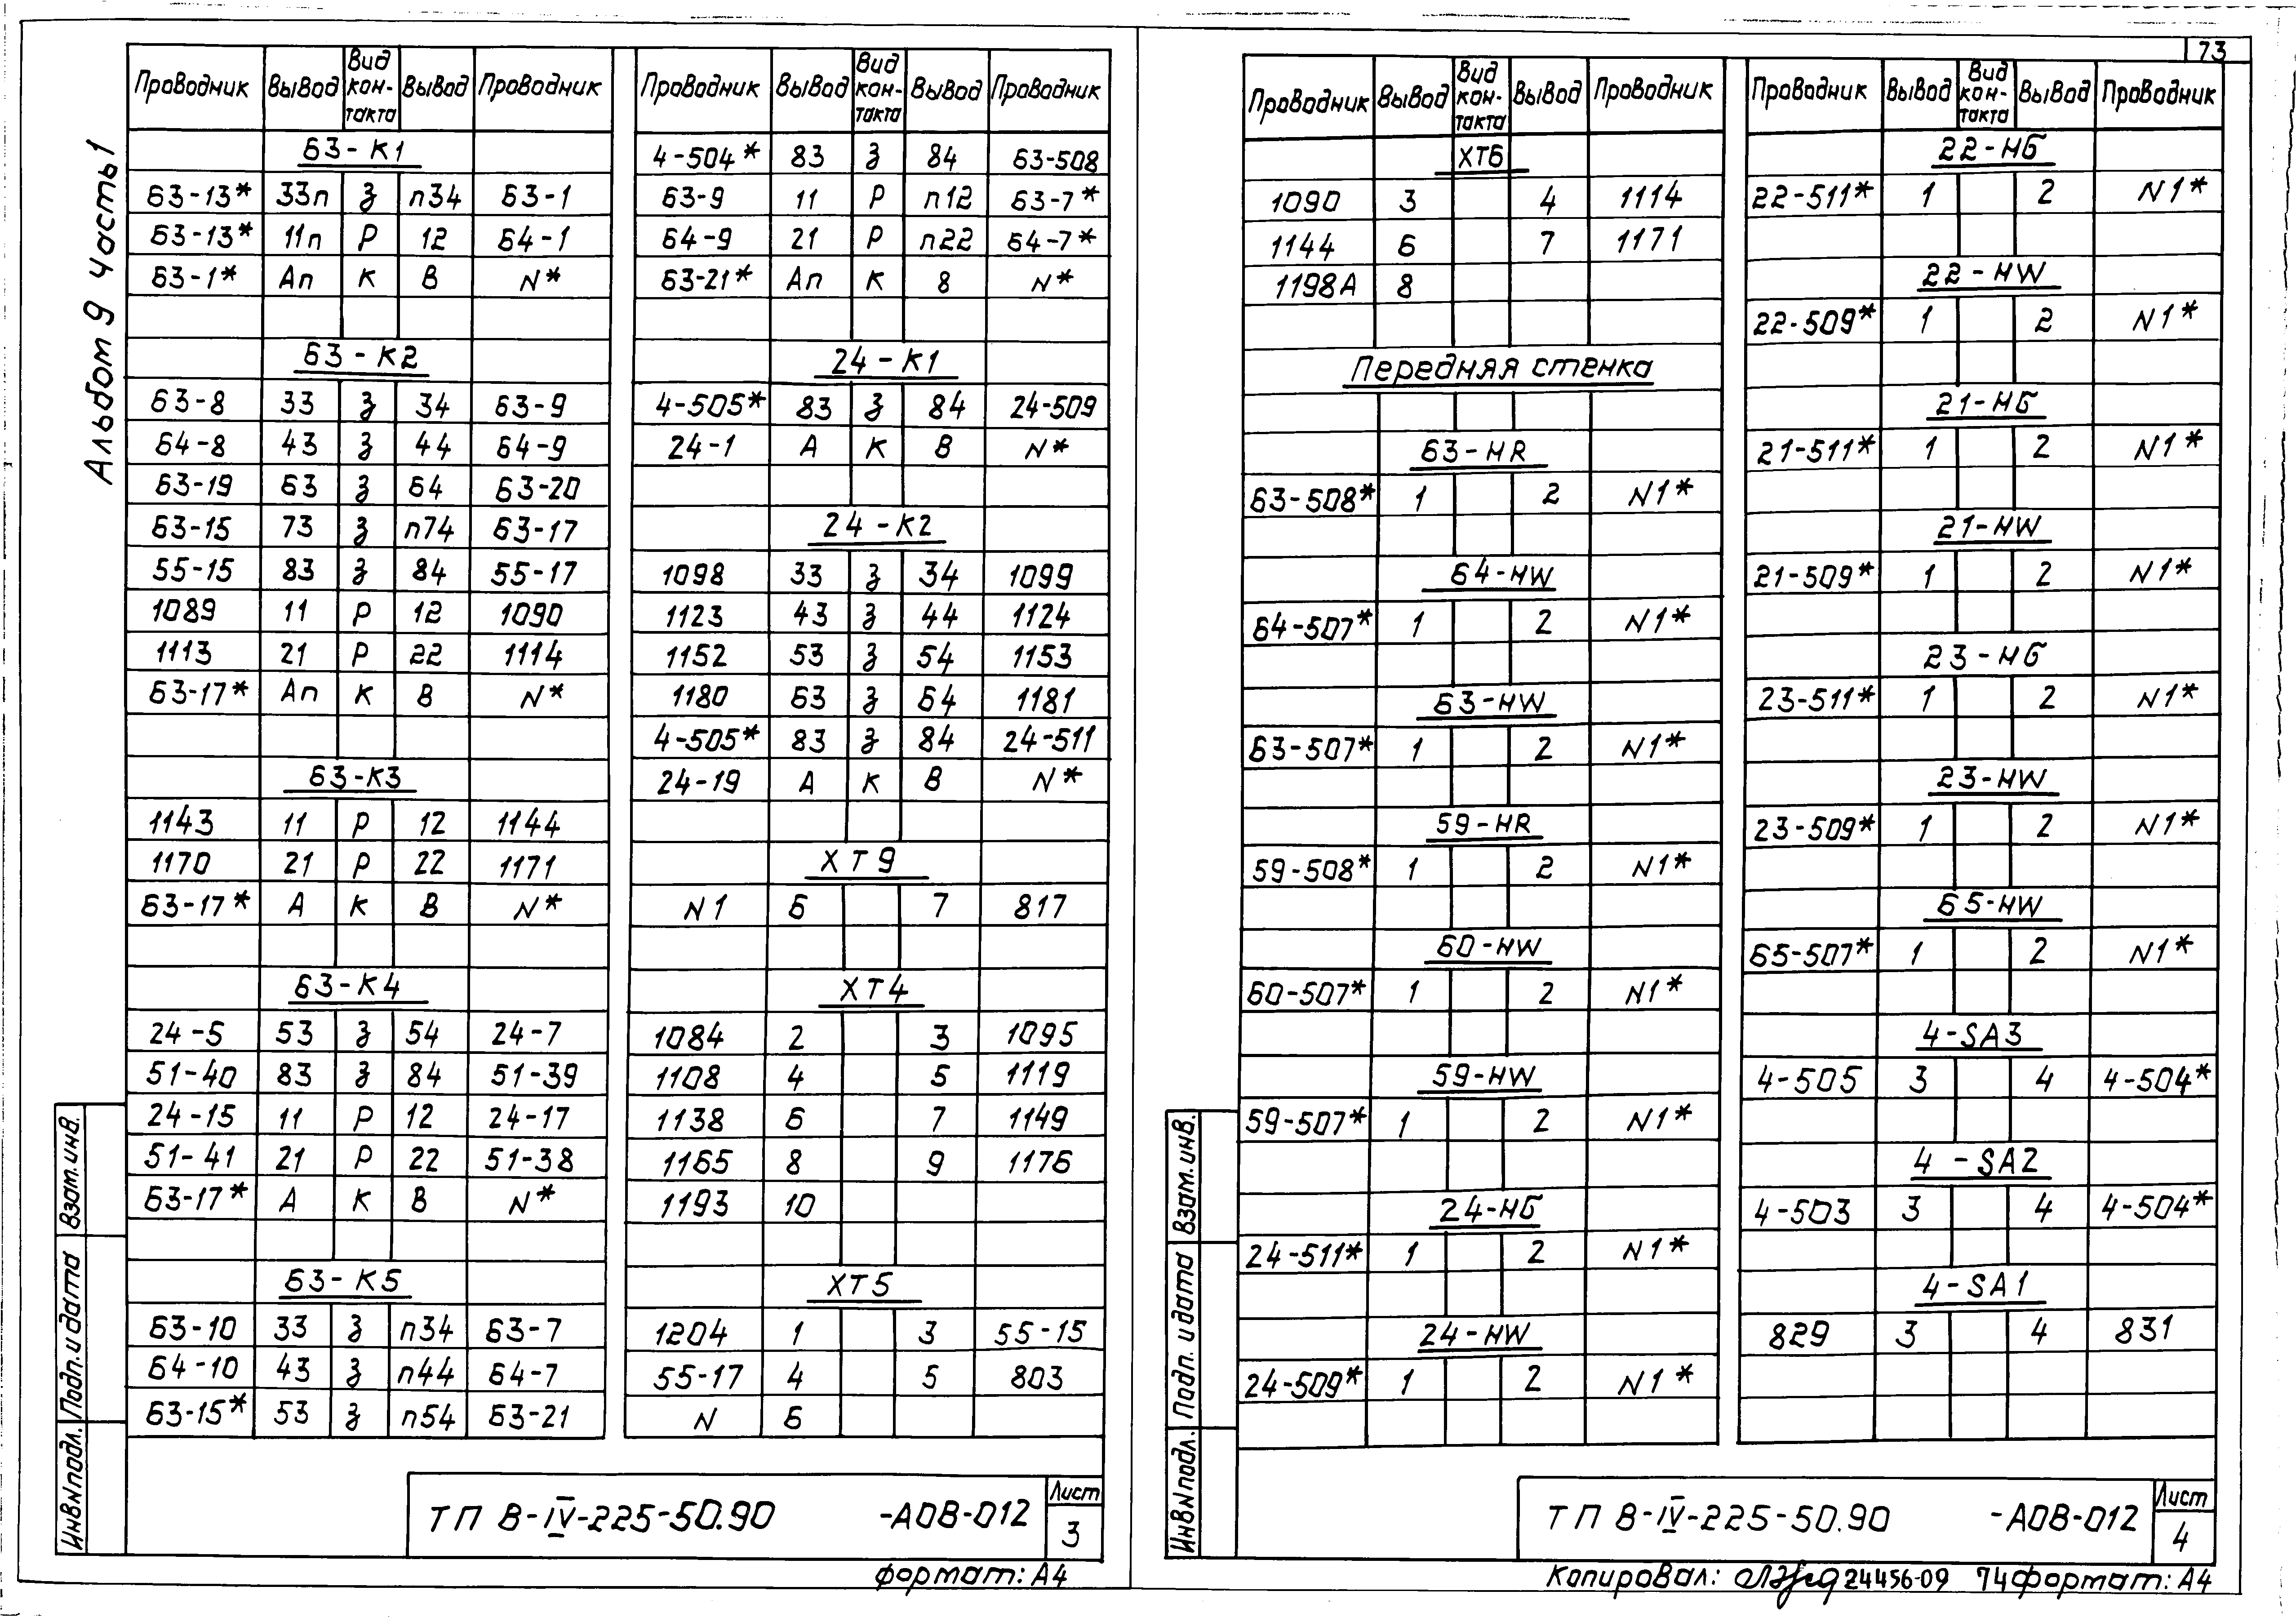 73
Альбом 9 часть 1
Проводник Вывод Вид контакта Вывод Проводник
63-К1
63-13* 33п З п34 63-1
63-13* 11п Р 12 64-1
63-1* Ап К В N*
63-К2
63-8 33 З 34 63-9
64-8 43 З 44 64-9
63-19 63 З 64 63-20
63-15 73 З п74 63-17
55-15 83 З 84 55-17
1089 11 Р 12 1090
1113 21 Р 22 1114
63-17* Ап К В N*
63-К3
1143 11 Р 12 1144
1170 21 Р 22 1171
63-17* А К В N*
63-К4
24-5 53 З 54 24-7
51-40 83 З 84 51-39
24-15 11 Р 12 24-17
51-41 21 Р 22 51-38
63-17* А К В N*
63-К5
63-10 33 З п34 63-7
64-10 43 З п44 64-7
63-15* 53 З п54 63-21
Проводник Вывод Вид контакта Вывод Проводник
4-504* 83 З 84 63-508
63-9 11 Р п12 63-7*
64-9 21 Р п22 64-7*
63-21* Ап К 8 N*
24-К1
4-505* 83 З 84 24-509
24-1 А К В N*
24-К2
1098 33 З 34 1099
1123 43 З 44 1124
1152 53 З 54 1153
1180 63 З 64 1181
4-505* 83 З 84 24-511
24-19 А К В N*
ХТ9
N1 6 7 817
ХТ4
1084 2 3 1095
1108 4 5 1119
1138 6 7 1149
1165 8 9 1176
1193 10
ХТ5
1204 1 3 55-15
55-17 4 5 803
N 6
ТП В-IV-225-50.90 -АОВ-012
Лист
3
формат: А4
Взам.инв.
Подп. и дата
Инв N подл.
Проводник Вывод Вид контакта Вывод Проводник
ХТ6
1090 3 4 1114
1144 6 7 1171
1198А 8
Передняя стенка
63-HR
63-508* 1 2 N1*
64-HW
64-507* 1 2 N1*
63-HW
63-507* 1 2 N1*
59-HR
59-508* 1 2 N1*
60-HW
60-507* 1 2 N1*
59-HW
59-507* 1 2 N1*
24-HG
24-511* 1 2 N1*
24-HW
24-509* 1 2 N1*
Проводник Вывод Вид контакта Вывод Проводник
22-HG
22-511* 1 2 N1*
22-HW
22-509* 1 2 N1*
21-HG
21-511* 1 2 N1*
21-HW
21-509* 1 2 N1*
23-HG
23-511* 1 2 N1*
23-HW
23-509* 1 2 N1*
65-HW
65-507* 1 2 N1*
4-SA3
4-505 3 4 4-504*
4-SA2
4-503 3 4 4-504*
4-SA1
829 3 4 831
ТП В-IV-225-50.90 -АОВ-012
Лист
4
Взам.инв.
Подп. и дата
Инв N подл.
Копировал: 24456-09 74 формат: А4